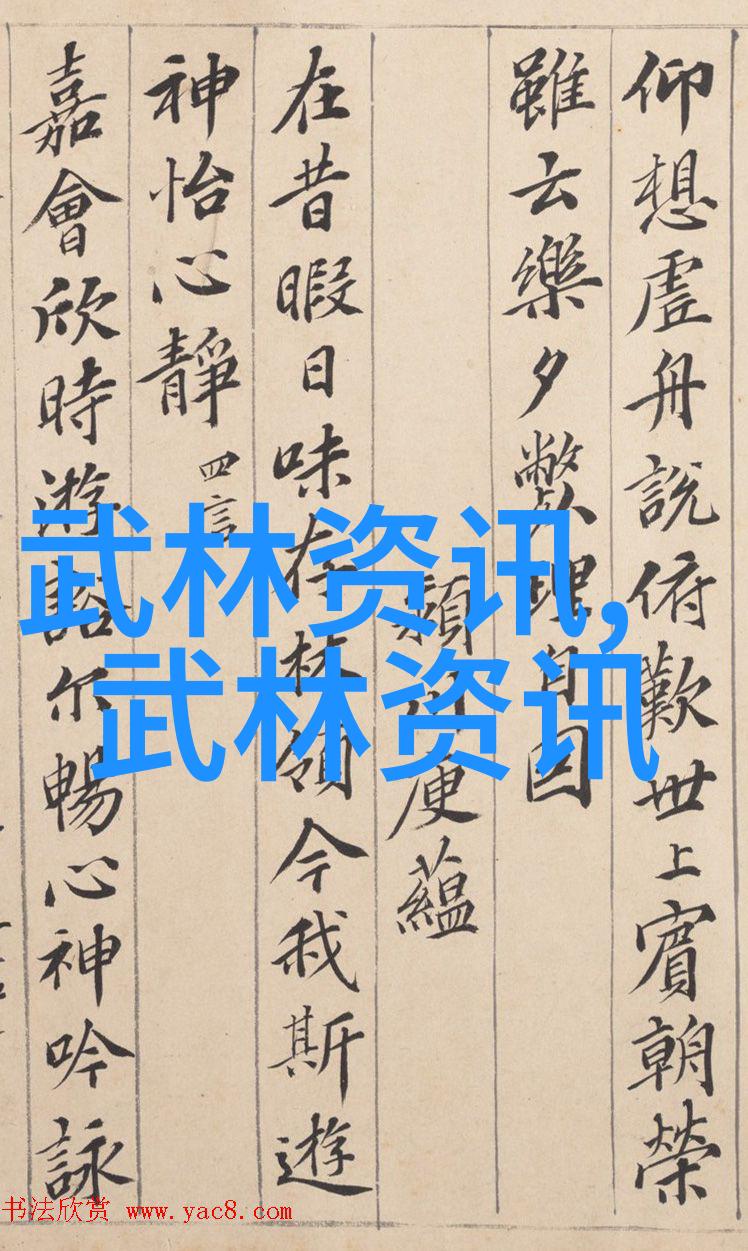 仰想虛舟說俯歎世上賓朝榮
雖云樂夕弊理自因
潁川庾蘊
在昔暇日味存林領今我斯遊
神怡心靜 四言
嘉會欣時游豁尓暢心神吟詠
武林资讯,
武林资讯
书法欣赏 www.yac8.com